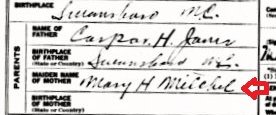 BIRTHPLACE
Greensboro N.C.
NAME OF
FATHER
H. Jones
BIRTHPLACE
OF FATHER
(State or Country)
Greensboro N.C.
PARENTS
MAIDEN NAME
OF MOTHER
Mary H Mitchel
BIRTHPLACE
OF MOTHER
(State or Country)
(1)